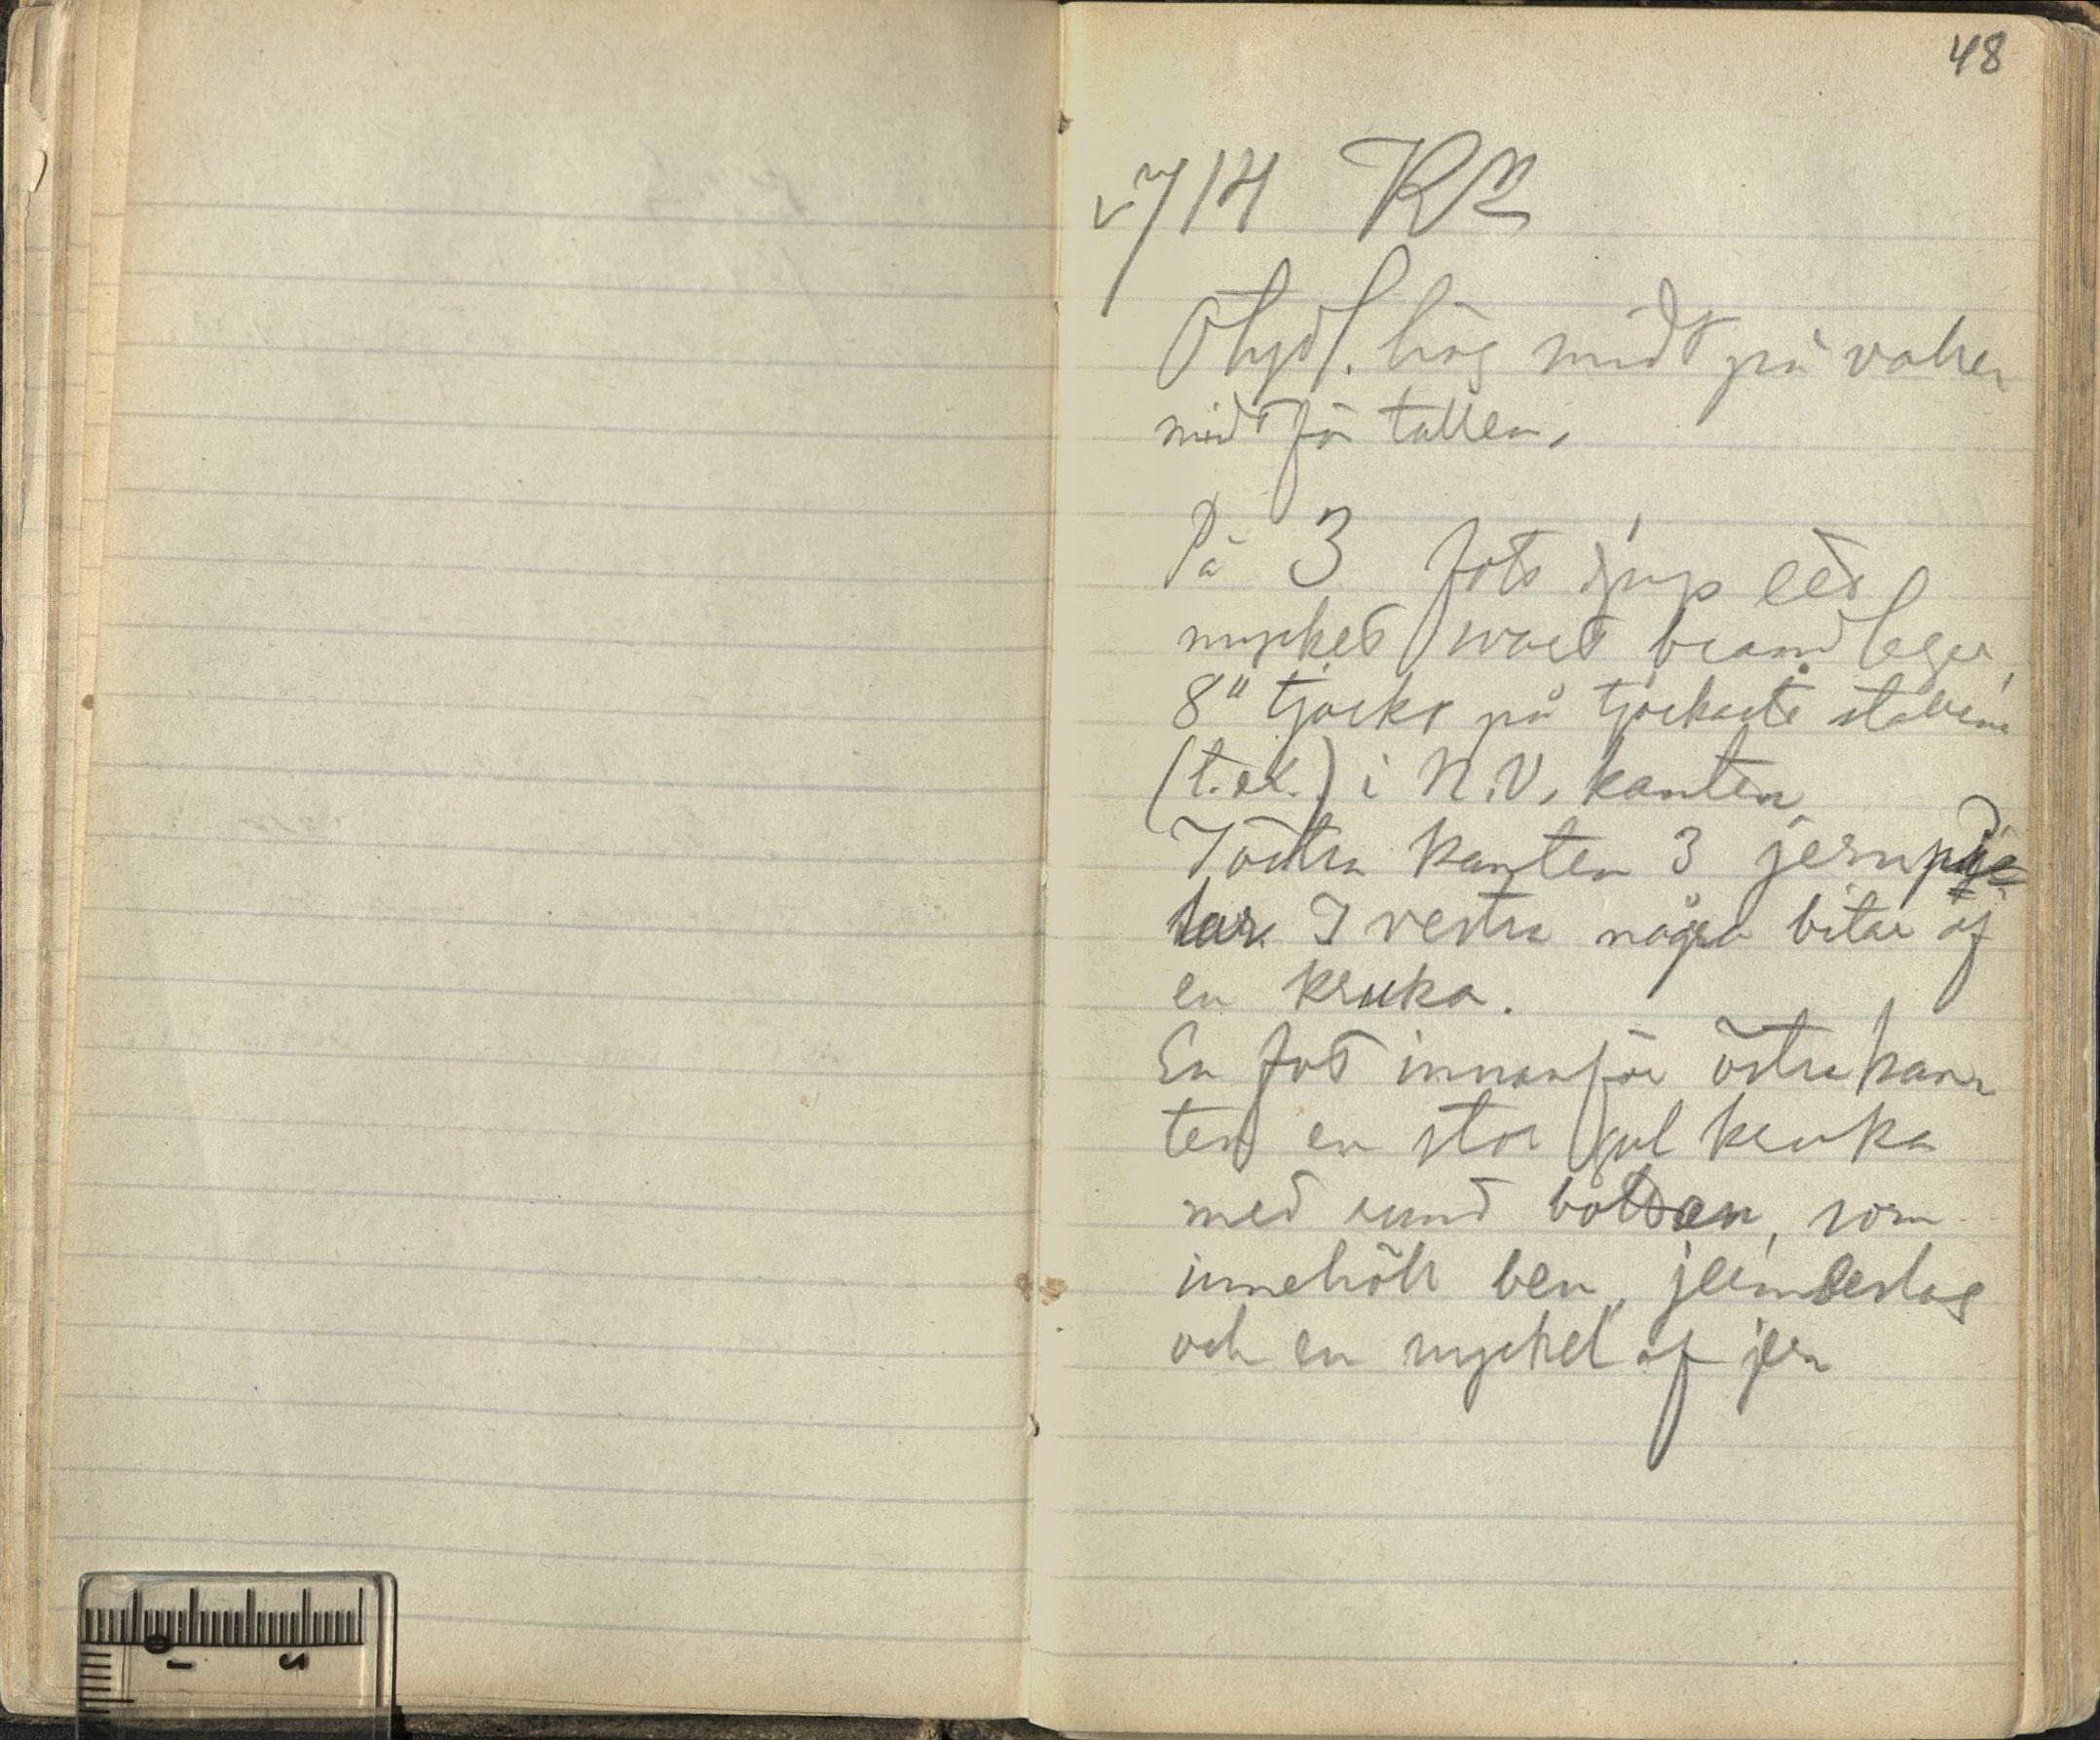 48
714
Otydl. hög midt på vallen
midt för tallen.
På 3 fots djup ett
mycket svart brandlager,
8" tjockt på tjockaste ställena
(t. ex.) i N.V. kanten
I östra kanten 3 jern
tar. I vestra några bitar af
en kruka.
En fot innanför östra kan
ten en stor gul kruka
med rund botten, som
innehöll ben, jernbeslag
och en nyckel af jern
1 2